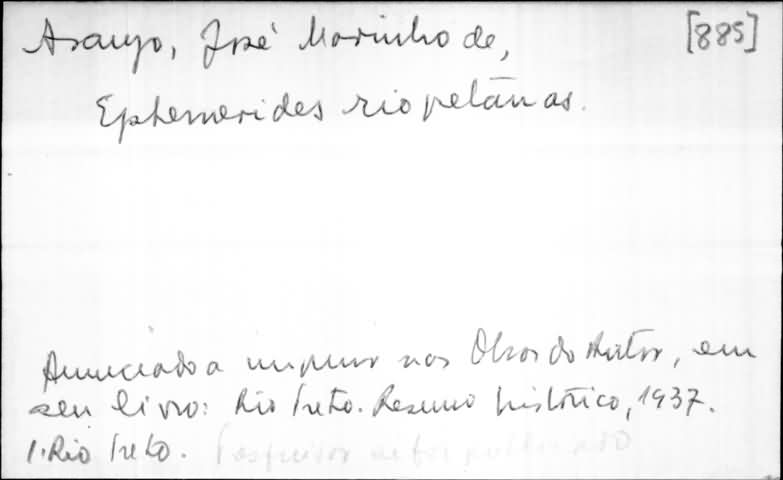 Araujo, José Marinho de, [885]
Ephemerides riopretanas.
Anunciado a imprimir nas Obras do Autor, em
seu livro: Rio Preto. Resumo histórico, 1937.
1. Rio Preto.